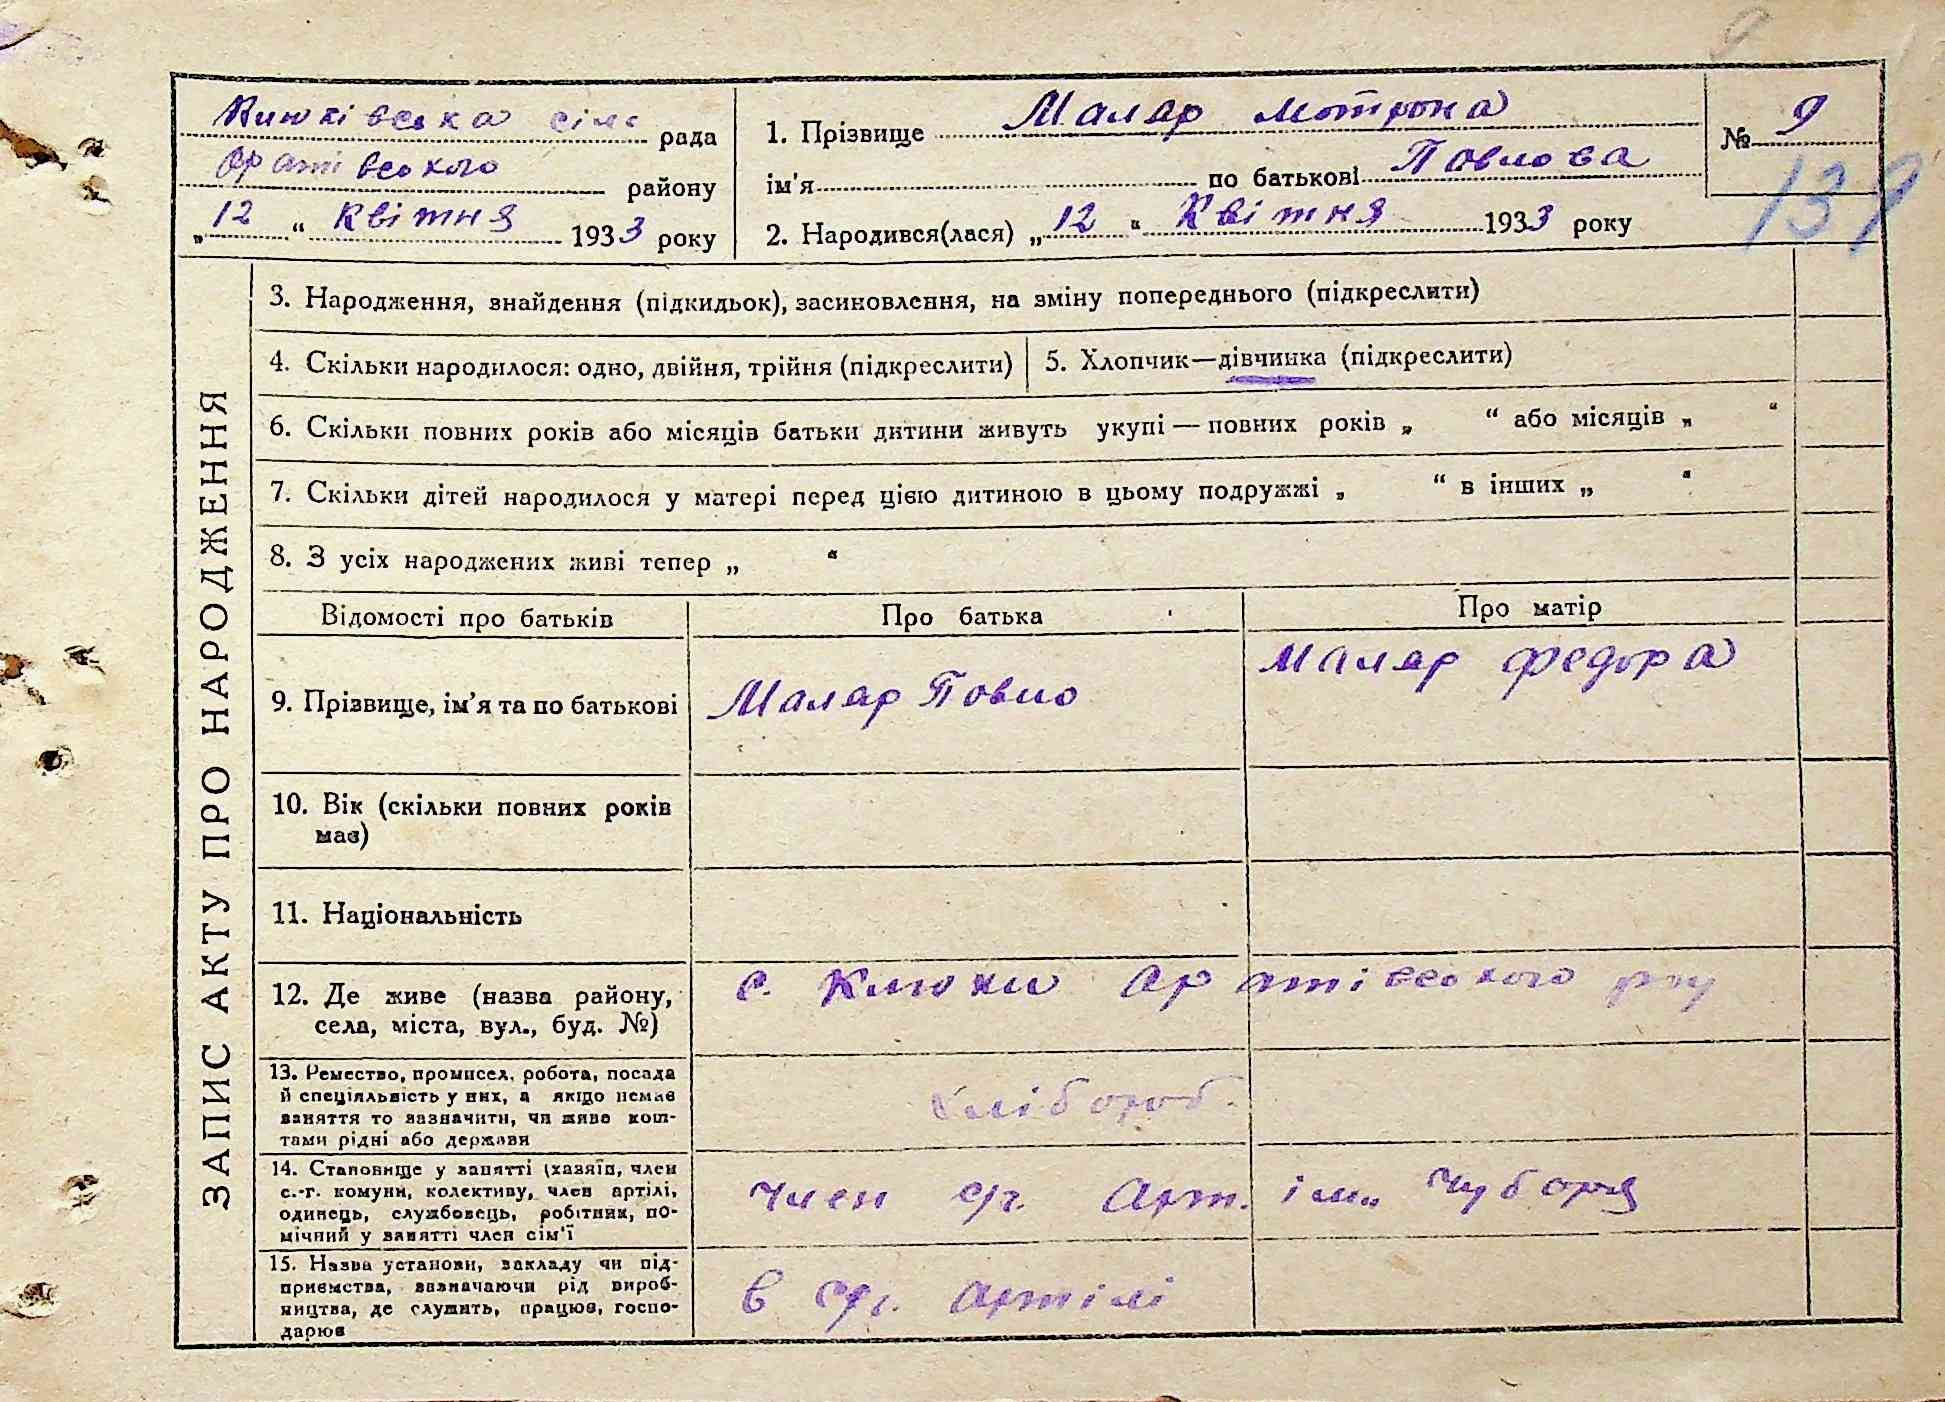 Клюківська сіль рада
Оратівського району
„12“ Квітня 1933 року
1. Прізвище Маляр Мотрона
ім'я по батькові Повлова
2. Народився(лася) „12“ Квітня 1933 року
№ 9
139
ЗАПИС АКТУ ПРО НАРОДЖЕННЯ
3. Народження, знайдення (підкидьок), засиновлення, на зміну попереднього (підкреслити)
4. Скільки народилося: одно, двійня, трійня (підкреслити)
5. Хлопчик—дівчинка (підкреслити)
6. Скільки повних років або місяців батьки дитини живуть укупі — повних років „ “ або місяців „ “
7. Скільки дітей народилося у матері перед цією дитиною в цьому подружжі „ “ в інших „ “
8. З усіх народжених живі тепер „ “
Відомості про батьків
Про батька
Про матір
9. Прізвище, ім'я та по батькові
Маляр Повло
Маляр Федора
10. Вік (скільки повних років
має)
11. Національність
12. Де живе (назва району,
села, міста, вул., буд. №)
с. Клюки Оратівського р-ну
13. Ремество, промисел, робота, посада
й спеціяльність у них, а якщо немає
заняття то зазначити, чи живе кош-
тами рідні або держави
хлібороб.
14. Становище у занятті (хазяїн, член
с.-г. комуни, колективу, член артілі,
одинець, службовець, робітник, по-
мічний у занятті член сім'ї
член с/г. Арт. ім. Чубаря
15. Назва установи, закладу чи під-
приємства, зазначаючи рід вироб-
ництва, де служить, працює, госпо-
дарює
в с/г. артілі